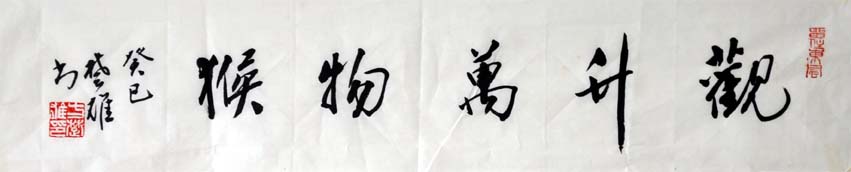 觀升萬物猴
癸巳
楚雄
书